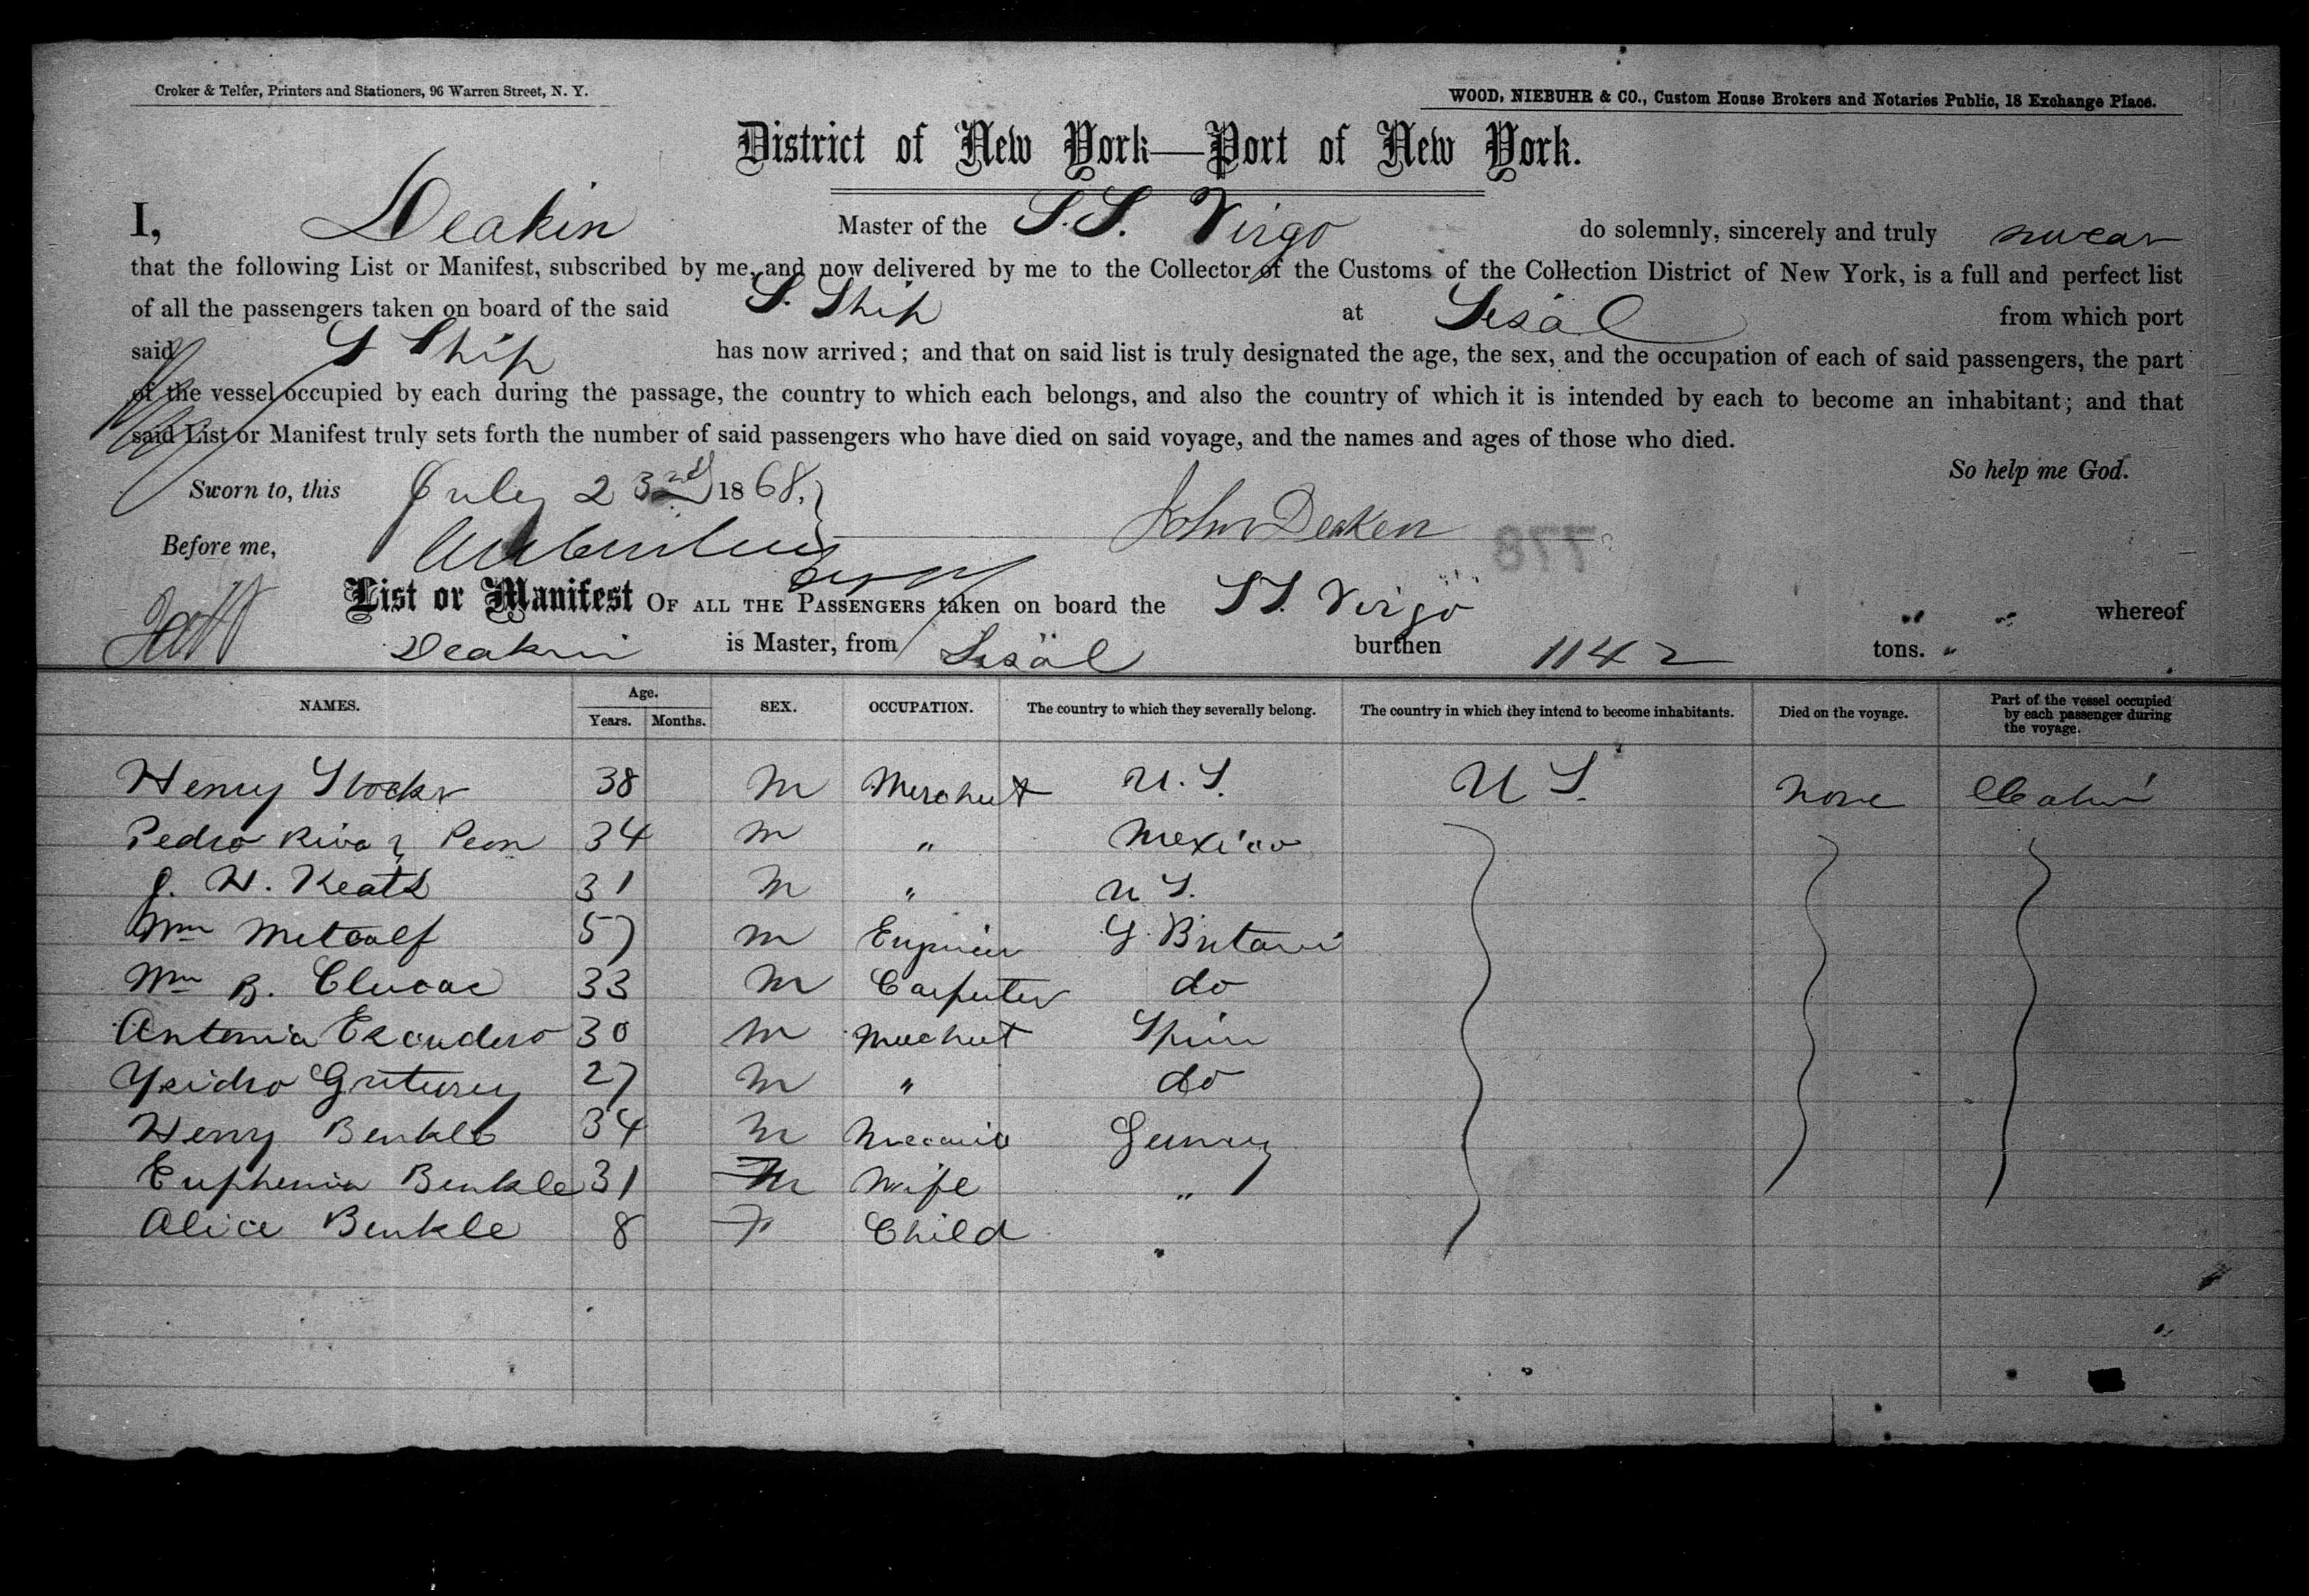 Croker & Telfer, Printers and Stationers, 96 Warren Street, N. Y.
WOOD, NIEBUHR & CO., Custom House Brokers and Notaries Public, 18 Exchange Place.
District of New York—Port of New York.
I, Deakin Master of the S.S. Virgo do solemnly, sincerely and truly swear
that the following List or Manifest, subscribed by me, and now delivered by me to the Collector of the Customs of the Collection District of New York, is a full and perfect list
of all the passengers taken on board of the said S. Ship at Sisal from which port
said S Ship has now arrived; and that on said list is truly designated the age, the sex, and the occupation of each of said passengers, the part
of the vessel occupied by each during the passage, the country to which each belongs, and also the country of which it is intended by each to become an inhabitant; and that
said List or Manifest truly sets forth the number of said passengers who have died on said voyage, and the names and ages of those who died.
So help me God.
Sworn to, this July 23rd 1868.
John Deaken
Before me,
877
List or Manifest OF ALL THE PASSENGERS taken on board the SS. Virgo whereof
Deakin is Master, from Sisal burthen 1142 tons.
NAMES. Age. Years. Months. SEX. OCCUPATION. The country to which they severally belong. The country in which they intend to become inhabitants. Died on the voyage. Part of the vessel occupied by each passenger during the voyage.
Henry Stocks 38 M Merchant U.S. U S. None Cabin
Pedro Rivas y Peon 34 M " Mexico
J. H. Keats 31 M " U S.
Wm Metcalf 57 M Engineer G. Britain
Wm B. 33 M Carpenter do
Antonio Escudero 30 M Merchant Spain
Ysidro 27 M " do
Henry Benkle 34 M Mecanic Germany
Euphemia Benkle 31 F Wife "
Alice Benkle 8 F Child "